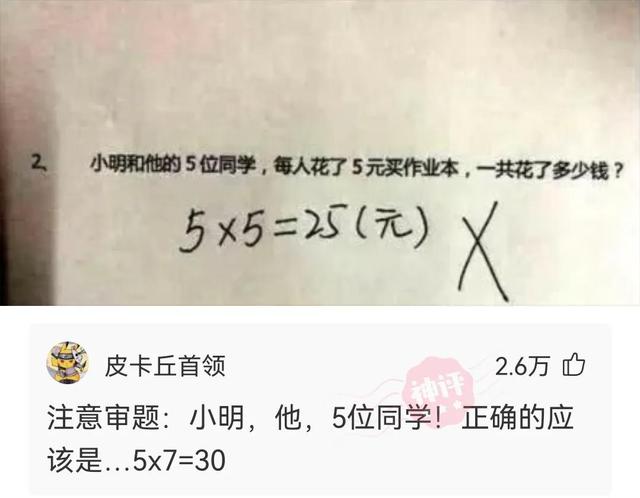 2、 小明和他的5位同学，每人花了5元买作业本，一共花了多少钱？
5×5=25(元) X
皮卡丘首领
2.6万
神评
注意审题：小明，他，5位同学！正确的应
该是...5x7=30